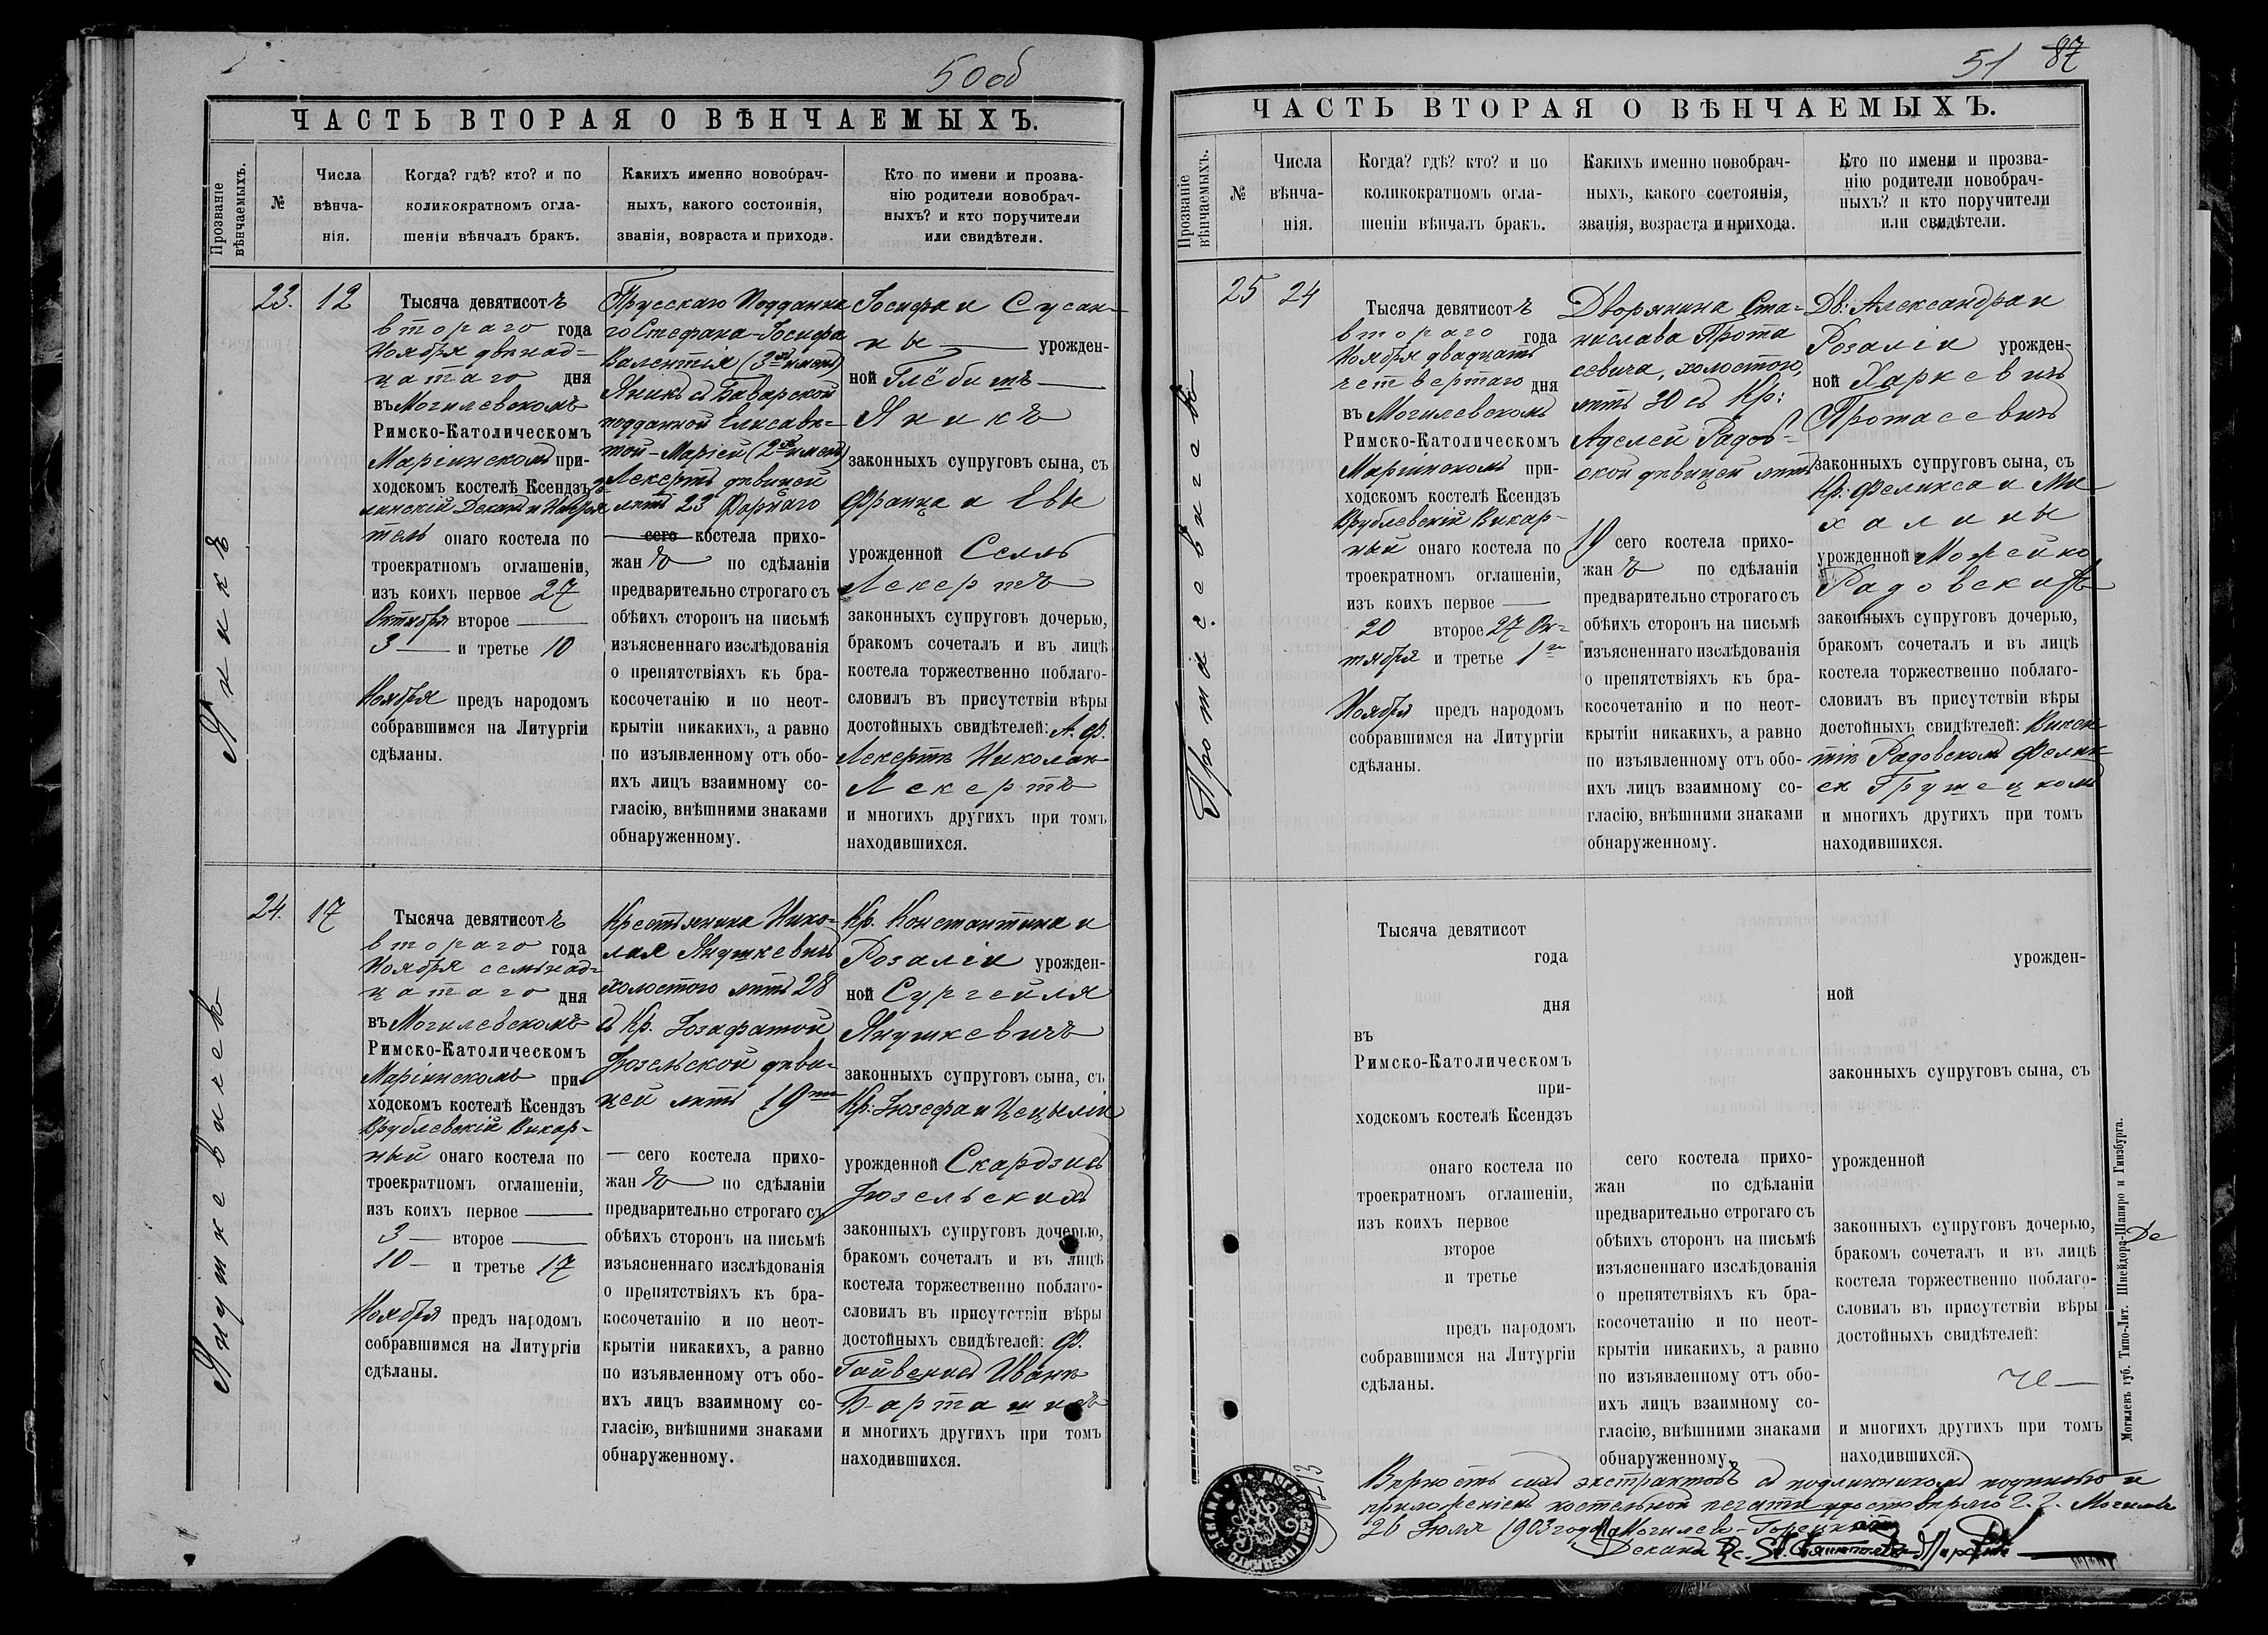 50об
ЧАСТЬ ВТОРАЯ О ВѢНЧАЕМЫХЪ.
Прозваніе вѣнчаемыхъ.
№
Числа
вѣнча-
нія.
Когда? гдѣ? кто? и по
коликократномъ огла-
шеніи вѣнчалъ бракъ.
Какихъ именно новобрач-
ныхъ, какого состоянія,
званія, возраста и прихода.
Кто по имени и прозва-
нію родители новобрач-
ныхъ? и кто поручители
или свидѣтели.
Яникъ
23.
12
Тысяча девятисотъ
втораго года
Ноября двѣнад-
цатаго дня
въ Могилевскомъ
Римско-Католическомъ
Маріинскомъ при-
ходскомъ костелѣ Ксендзъ
Деканъ и Настоя
тель онаго костела по
троекратномъ оглашеніи,
изъ коихъ первое 27
Октября второе
3 и третье 10
Ноября предъ народомъ
собравшимся на Литургіи
сдѣланы.
Прусскаго Подданна
го Стефана-Іосифа
Валентія (3хъ именъ)
Яникъ съ Баварской
подданной Елисаве-
той-Маріей (2хъ именъ)
Лекертъ дѣвицей
лѣтъ 23 Фарнаго
сего костела прихо-
жанъ по сдѣланіи
предварительно строгаго съ
обѣихъ сторонъ на письмѣ
изъясненнаго изслѣдованія
о препятствіяхъ къ бра-
косочетанію и по неот-
крытіи никакихъ, а равно
по изъявленному отъ обо-
ихъ лицъ взаимному со-
гласію, внѣшними знаками
обнаруженному.
Іосифа и Сусан-
ны урожден-
ной Глёбитъ
Яникъ
законныхъ супруговъ сына, съ
Франца и Евы
урожденной Селль
Лекертъ
законныхъ супруговъ дочерью,
бракомъ сочеталъ и въ лицѣ
костела торжественно поблаго-
словилъ въ присутствіи вѣры
достойныхъ свидѣтелей: А. Ф.
Лекертъ Николай
Лекертъ
и многихъ другихъ при томъ
находившихся.
Янушкевичъ
24.
17
Тысяча девятисотъ
втораго года
Ноября семнад-
цатаго дня
въ Могилевскомъ
Римско-Католическомъ
Маріинскомъ при-
ходскомъ костелѣ Ксендзъ
Врублевскій Викар-
ный онаго костела по
троекратномъ оглашеніи,
изъ коихъ первое
3 второе
10 и третье 17
Ноября предъ народомъ
собравшимся на Литургіи
сдѣланы.
Крестьянина Нико-
лая Янушкевичъ
холостого лѣтъ 28
съ Кр. Іозафатой
Іюзельской дѣви-
цей лѣтъ 19ти
сего костела прихо-
жанъ по сдѣланіи
предварительно строгаго съ
обѣихъ сторонъ на письмѣ
изъясненнаго изслѣдованія
о препятствіяхъ къ бра-
косочетанію и по неот-
крытіи никакихъ, а равно
по изъявленному отъ обо-
ихъ лицъ взаимному со-
гласію, внѣшними знаками
обнаруженному.
Кр. Константина и
Розаліи урожден-
ной Сургейля
Янушкевичъ
законныхъ супруговъ сына, съ
Кр: Іюзефа и Цецыліи
урожденной Скардзисъ
Іюзельскихъ
законныхъ супруговъ дочерью,
бракомъ сочеталъ и въ лицѣ
костела торжественно поблаго-
словилъ въ присутствіи вѣры
достойныхъ свидѣтелей: Ф.
Гаевскій Иванъ
Барташъ
и многихъ другихъ при томъ
находившихся.
51 87
ЧАСТЬ ВТОРАЯ О ВѢНЧАЕМЫХЪ.
Прозваніе вѣнчаемыхъ.
№
Числа
вѣнча-
нія.
Когда? гдѣ? кто? и по
коликократномъ огла-
шеніи вѣнчалъ бракъ.
Какихъ именно новобрач-
ныхъ, какого состоянія,
званія, возраста и прихода.
Кто по имени и прозва-
нію родители новобрач-
ныхъ? и кто поручители
или свидѣтели.
Протасевичъ
25
24
Тысяча девятисотъ
втораго года
Ноября двадцать
четвертаго дня
въ Могилевскомъ
Римско-Католическомъ
Маріинскомъ при-
ходскомъ костелѣ Ксендзъ
Врублевскій Викар-
ный онаго костела по
троекратномъ оглашеніи,
изъ коихъ первое
20 второе 27 Ок-
тября и третье 1го
Ноября предъ народомъ
собравшимся на Литургіи
сдѣланы.
Дворянина Ста-
нислава Прота
севича, холостого,
лѣтъ 30 съ Кр:
Аделей Радов-
ской дѣвицей лѣтъ
19 сего костела прихо-
жанъ по сдѣланіи
предварительно строгаго съ
обѣихъ сторонъ на письмѣ
изъясненнаго изслѣдованія
о препятствіяхъ къ бра-
косочетанію и по неот-
крытіи никакихъ, а равно
по изъявленному отъ обо-
ихъ лицъ взаимному со-
гласію, внѣшними знаками
обнаруженному.
Дв: Александра и
Розаліи урожден-
ной Харкевичъ
Протасевичъ
законныхъ супруговъ сына, съ
Кр. Феликса и Ми
халины
урожденной Можейко
Радовскихъ
законныхъ супруговъ дочерью,
бракомъ сочеталъ и въ лицѣ
костела торжественно поблаго-
словилъ въ присутствіи вѣры
достойныхъ свидѣтелей: Викен
тіѣ Радовскомъ Феликсѣ
Грушецкомъ
и многихъ другихъ при томъ
находившихся.
Тысяча девятисот
года
дня
въ
Римско-Католическомъ
при-
ходскомъ костелѣ Ксендзъ
онаго костела по
троекратномъ оглашеніи,
изъ коихъ первое
второе
и третье
предъ народомъ
собравшимся на Литургіи
сдѣланы.
сего костела прихо-
жан по сдѣланіи
предварительно строгаго съ
обѣихъ сторонъ на письмѣ
изъясненнаго изслѣдованія
о препятствіяхъ къ бра-
косочетанію и по неот-
крытіи никакихъ, а равно
по изъявленному отъ обо-
ихъ лицъ взаимному со-
гласію, внѣшними знаками
обнаруженному.
урожден-
ной
законныхъ супруговъ сына, съ
урожденной
законныхъ супруговъ дочерью,
бракомъ сочеталъ и въ лицѣ
костела торжественно поблаго-
словилъ въ присутствіи вѣры
достойныхъ свидѣтелей:
и многихъ другихъ при томъ
находившихся.
Могилевъ губ. Типо-Лит. Шнейдера-Шапиро и Гинзбурга.
Де
Вѣрность сихъ экстрактовъ съ подлинникомъ подписью и
приложеніемъ костельной печати удостовѣряю г. г. Могилевъ
26 Іюля 1903 года Могилево-Горецкій
Деканъ Кс.